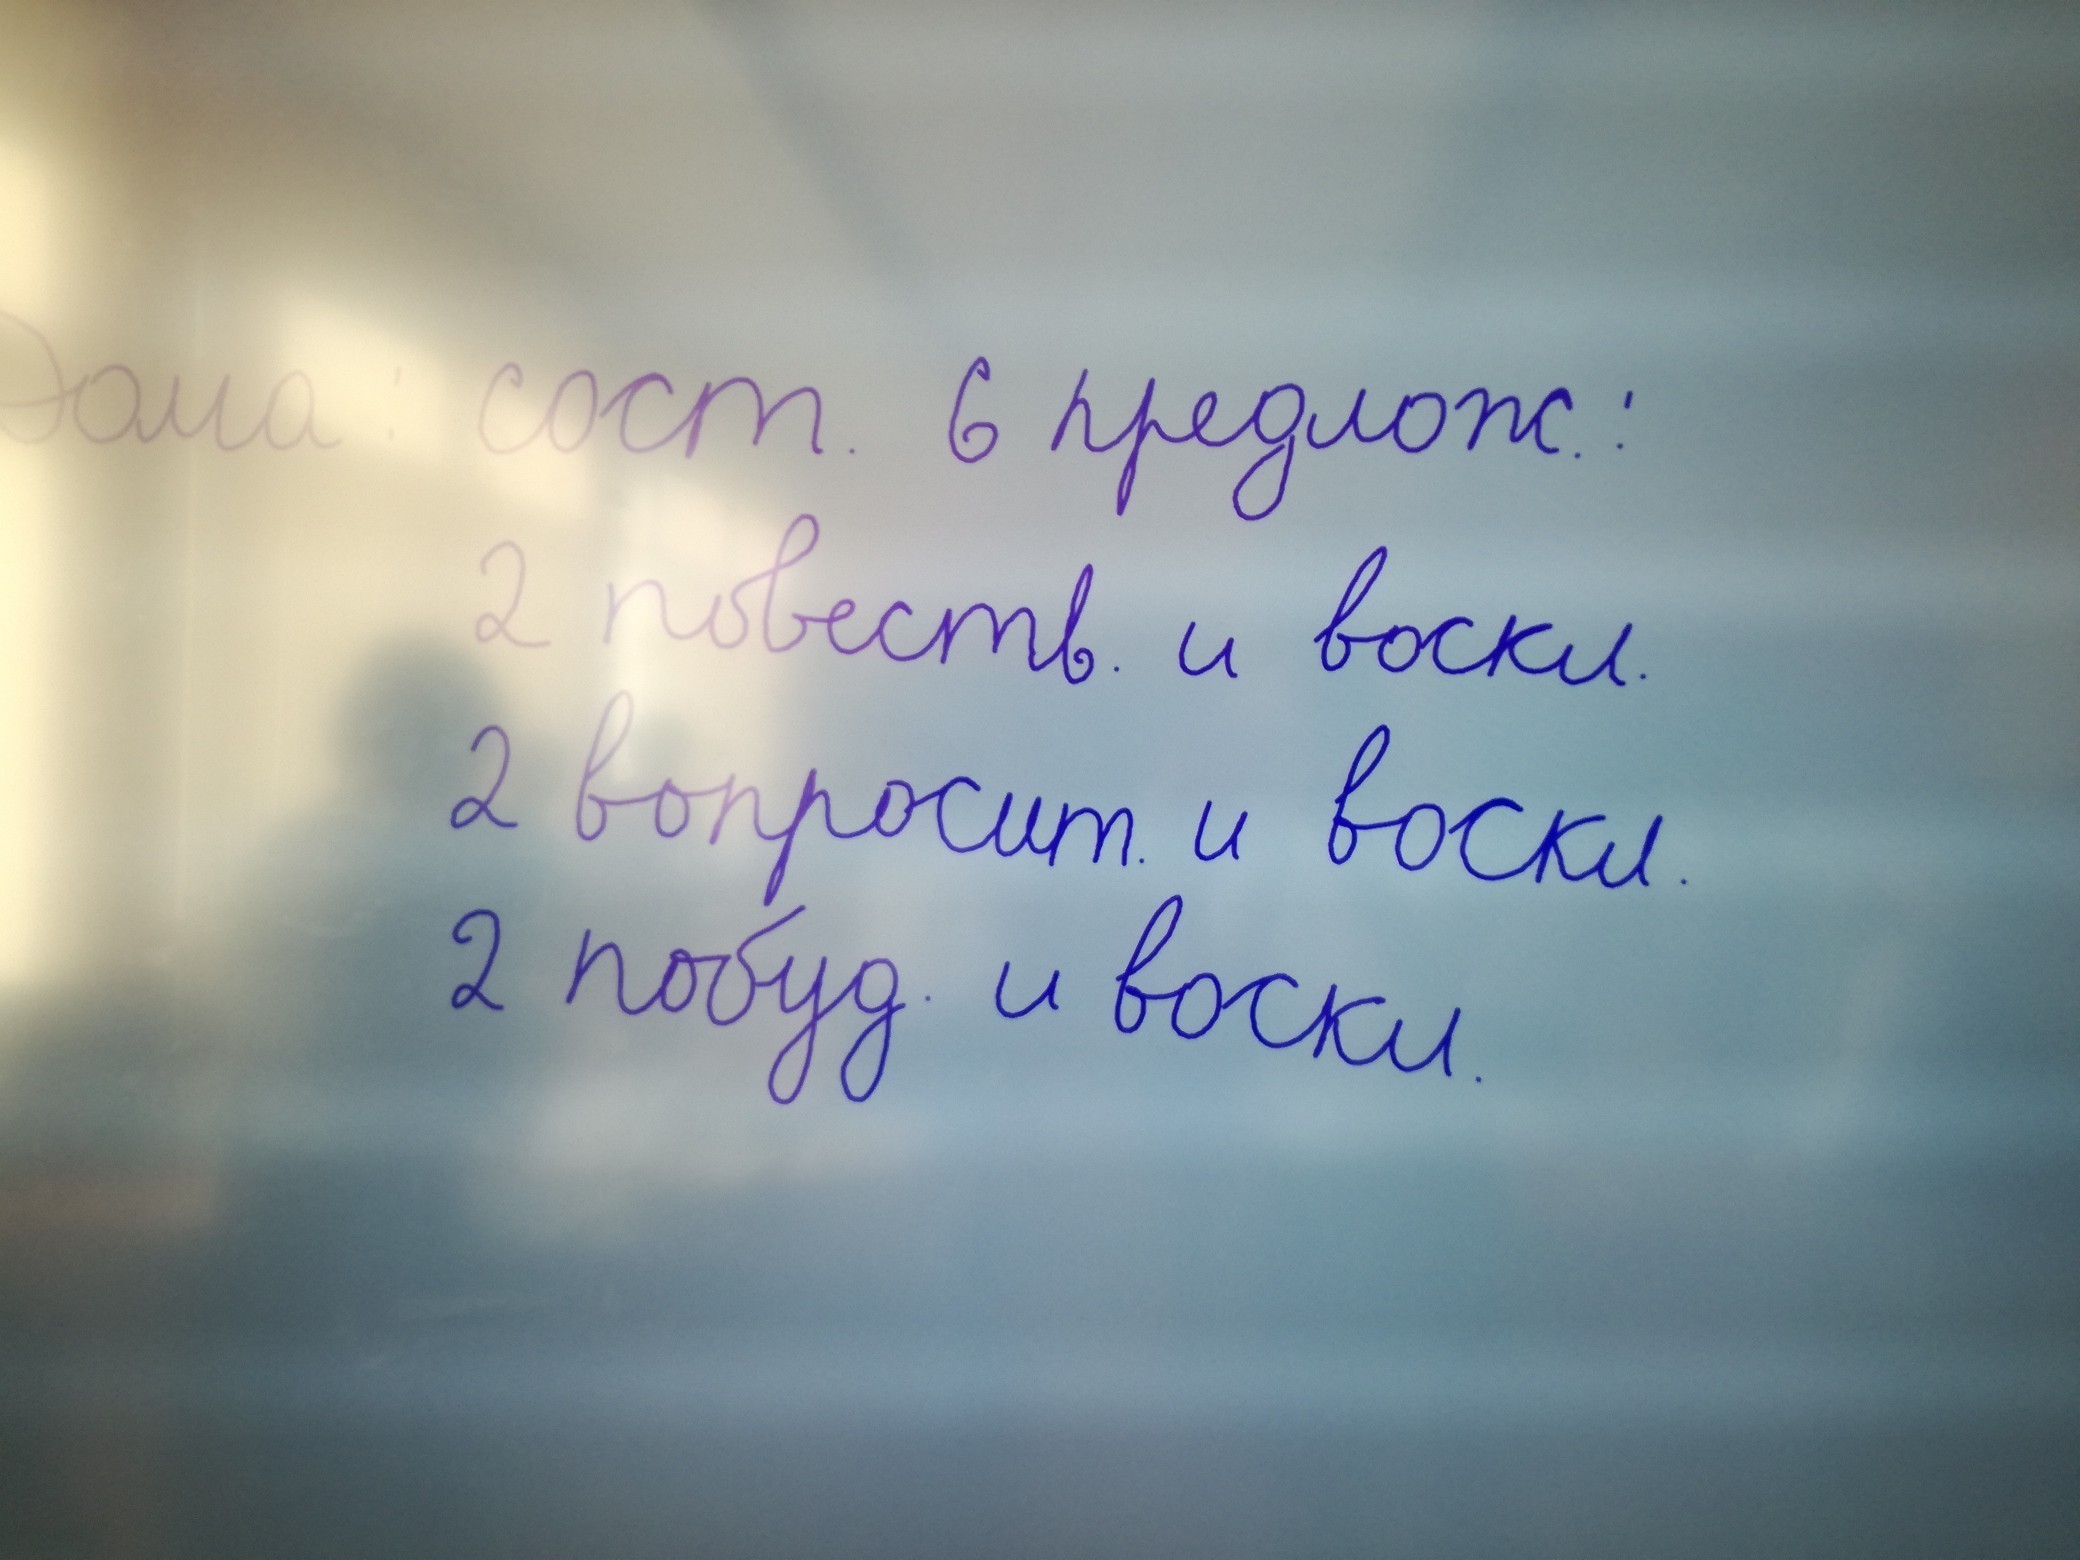 Дома: сост. 6 предлож.:
2 повеств. и воскл.
2 вопросит. и воскл.
2 побуд. и воскл.